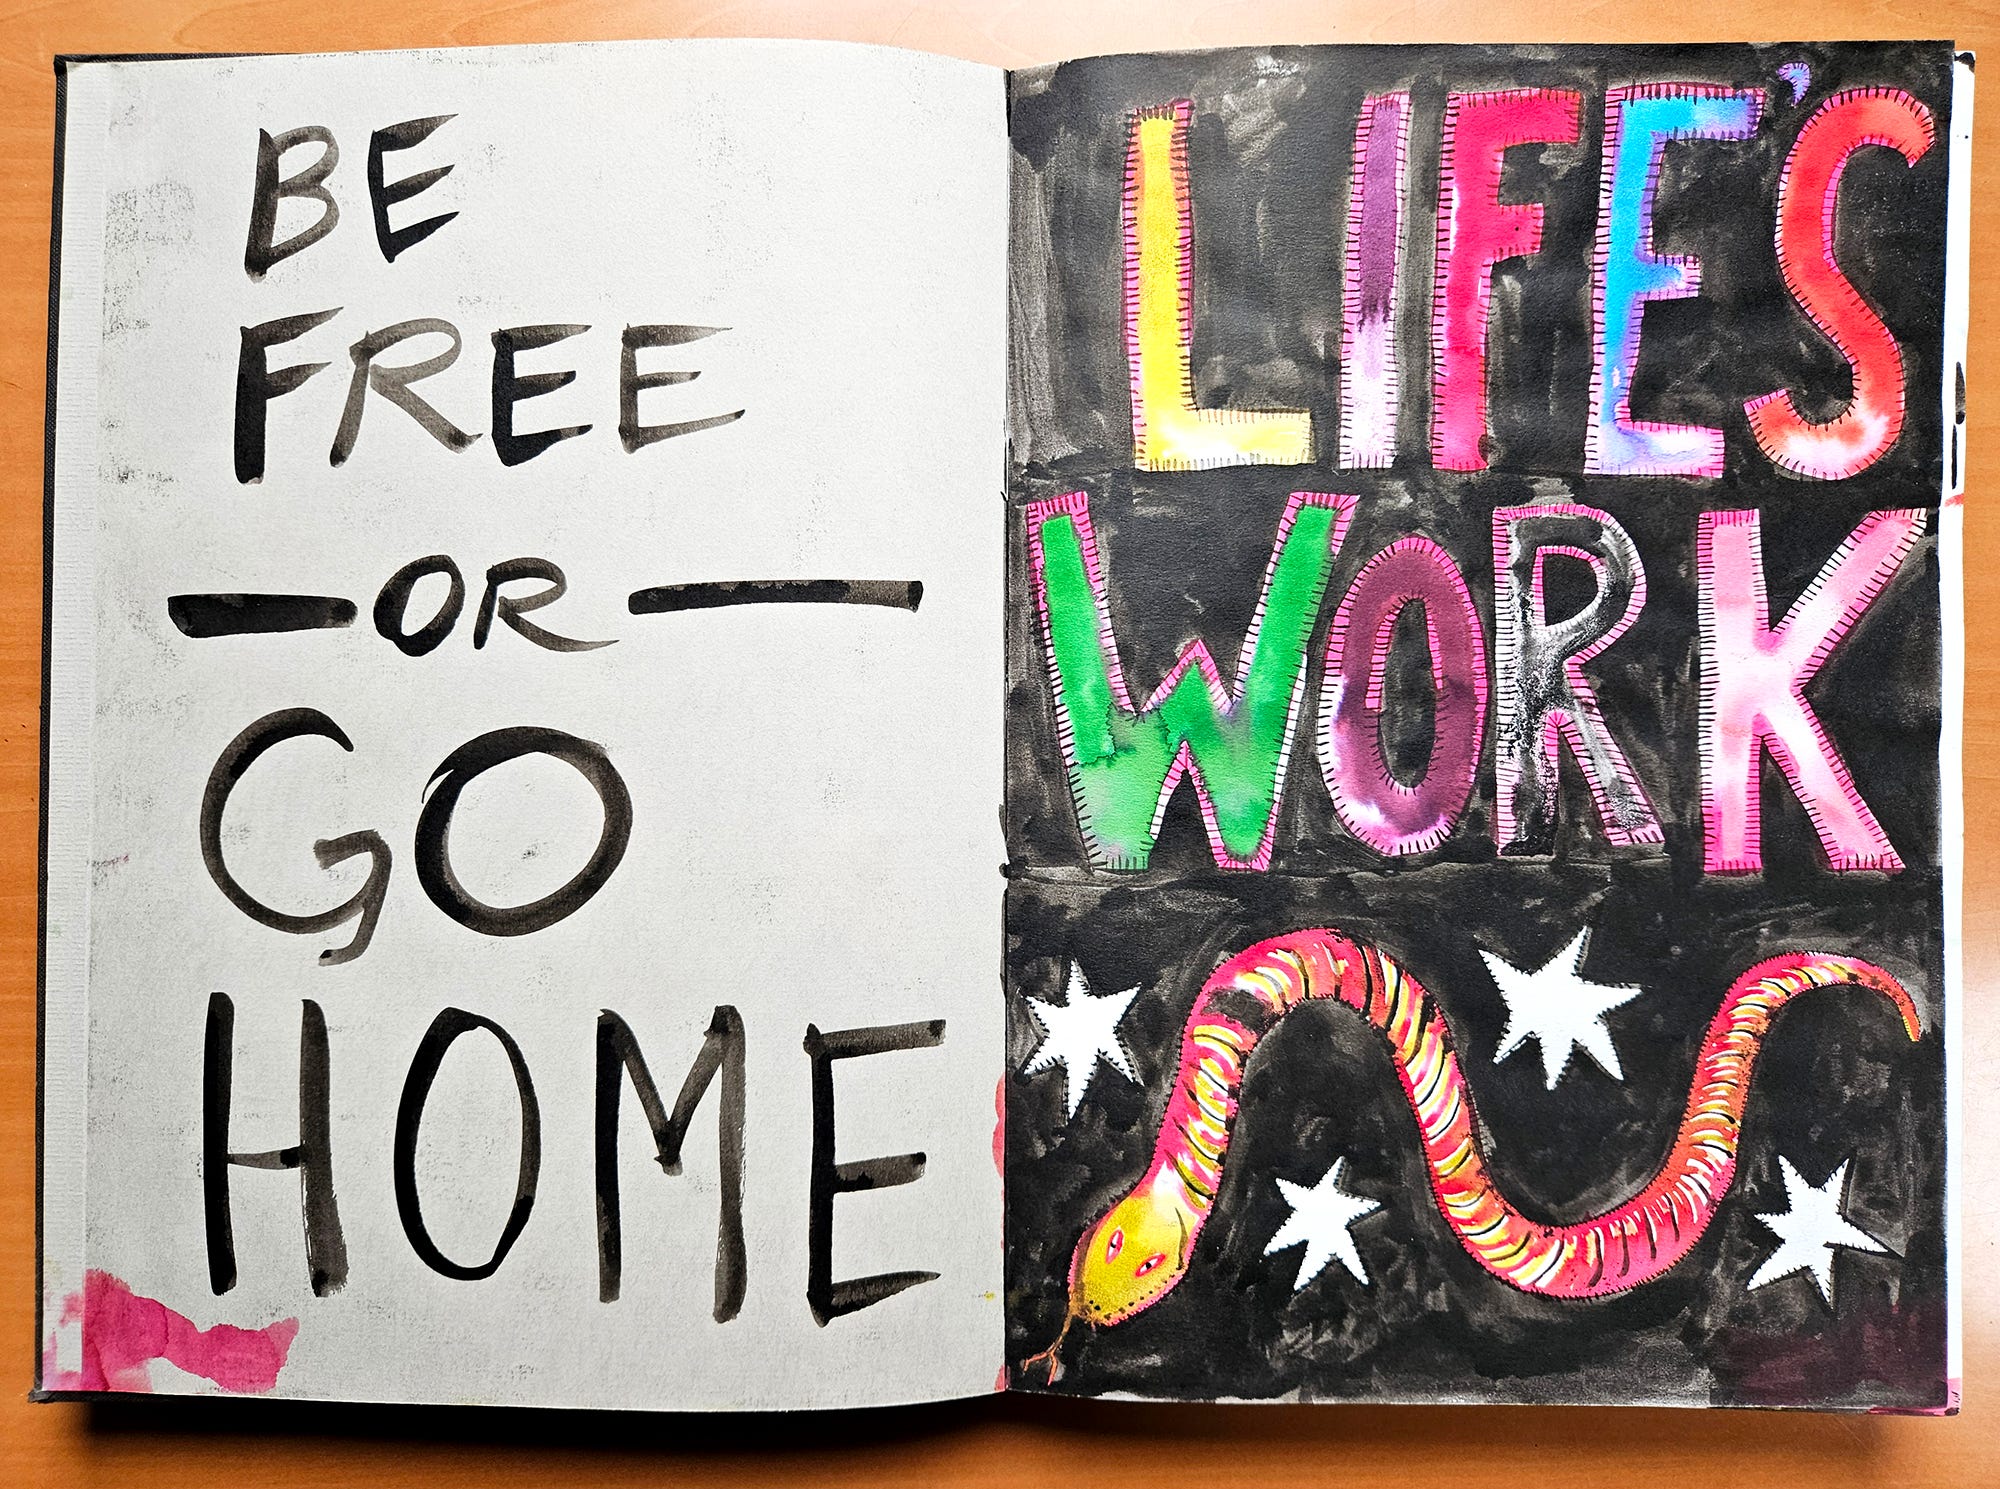 BE
FREE
—OR—
GO
HOME
LIFE'S
WORK